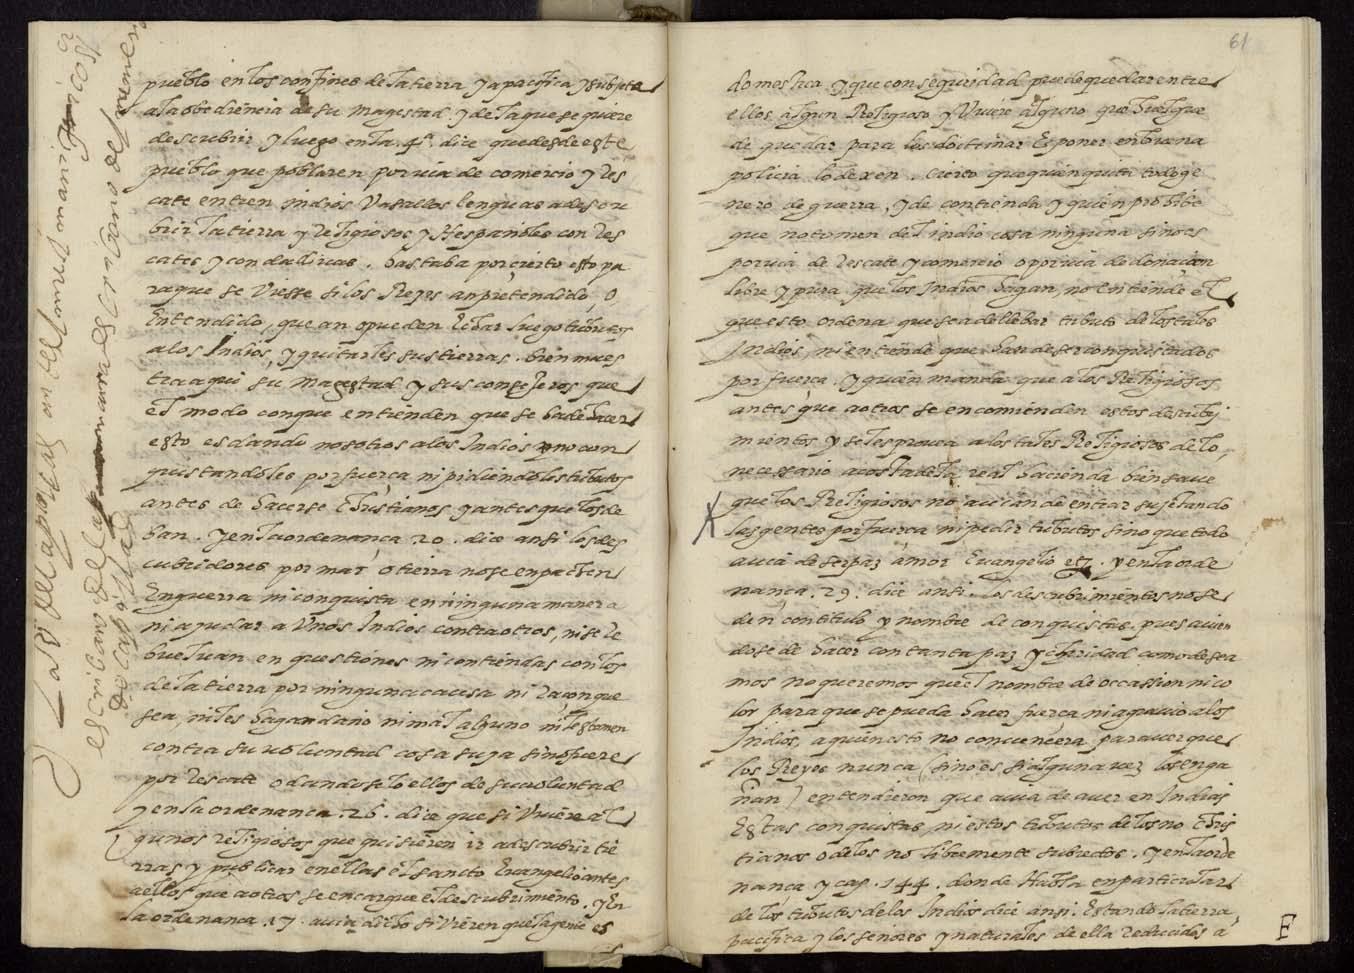 pueblo en los confines de la tierra y apacifica y subjeta
a la obediencia de su magestad y de la que se quiere
descubrir y luego en la .4ª. dize que desde este
pueblo que poblaren por via de comercio y res
cate entren indios vasallos lenguas a descu
brir la tierra y religiosos y Hespañoles con res
cates y con dadivas. bastaba por cierto esto pa
ra que se viesse si los Reyes an pretendido, o,
Entendido, que an o pueden Echar luego tributos
a los Indios, y quitarles sus tierras. bien mues
tra aqui su magestad y sus consejeros que
el modo con que entienden que se ha de hacer
esto es dando nosotros a los Indios y no con
quistandoles por fuerça ni pidiendoles tributos
antes de hacerse christianos y antes que los de
ban. y en la ordenança 20. dice ansi los des
cubridores por mar o tierra no se enpachen
En guerra ni conquista en ninguna manera
ni ayudar a Unos Indios contra otros, ni se re
buelvan en questiones ni contiendas con los
de la tierra por ninguna causa ni raçon que
sea, ni les hagan daño ni mal alguno ni les tomen
contra su voluntad cosa suya si no fuere
por rescate o dandoselo ellos de su voluntad
y en la ordenança .26. dice que si Uviere al
gunos religiosos que quisieren ir a descubrir tie
rras y publicar en ellas el sancto Evangelio antes
a ellos que a otros se encargue el descubrimiento. y En
la ordenança .17. avia dicho si vieren que la gente es
61
domestica y que con seguridad puede quedar entre
ellos algun Religioso y Uviere alguno que huelgue
de quedar para los doctrinar E poner en buena
policia lo dexen. cierto que quien quita todo ge
nero de guerra, y de contienda y quien prohibe
que no tomen del indio cosa ninguna sino es
por via de rescate y comercio o por via de donacion
libre y pura que los Indios hagan, no entiende el
que esto ordena que se a de llebar tributo de los tales
Indios, ni entiende que han de ser conquistados
por fuerça. y quien manda que a los Religiosos
antes que a otros se encomienden estos descubri
mientos y se les provea a los tales Religiosos de lo
necessario a costa de la real hacienda bien save
que los Religiosos no avian de entrar sujetando
las gentes por fuerça ni pedir tributos sino que todo
avia de ser paz amor Evangelio etc. y en la orde
nança .29. dice ansi. Los descubrimientos no se
den con titulo y nombre de conquistas pues avien
dose de hacer con tanta paz y charidad como desea
mos no queremos que el nombre de occassion ni co
lor para que se pueda hacer fuerça ni agravio a los
Indios, a quien esto no convencera para ver que
los Reyes nunca (sino es si alguna vez los enga
ñan) entendieron que avia de aver en Indias
Estas conquistas ni estos tributos de los no chris
tianos o de los no libremente subjectos. y en la orde
nança y cap. 144. donde Habla en particular
de los tributos de los Indios dice ansi. Estando la tierra
pacifica y los señores y naturales de ella reducidos a
F